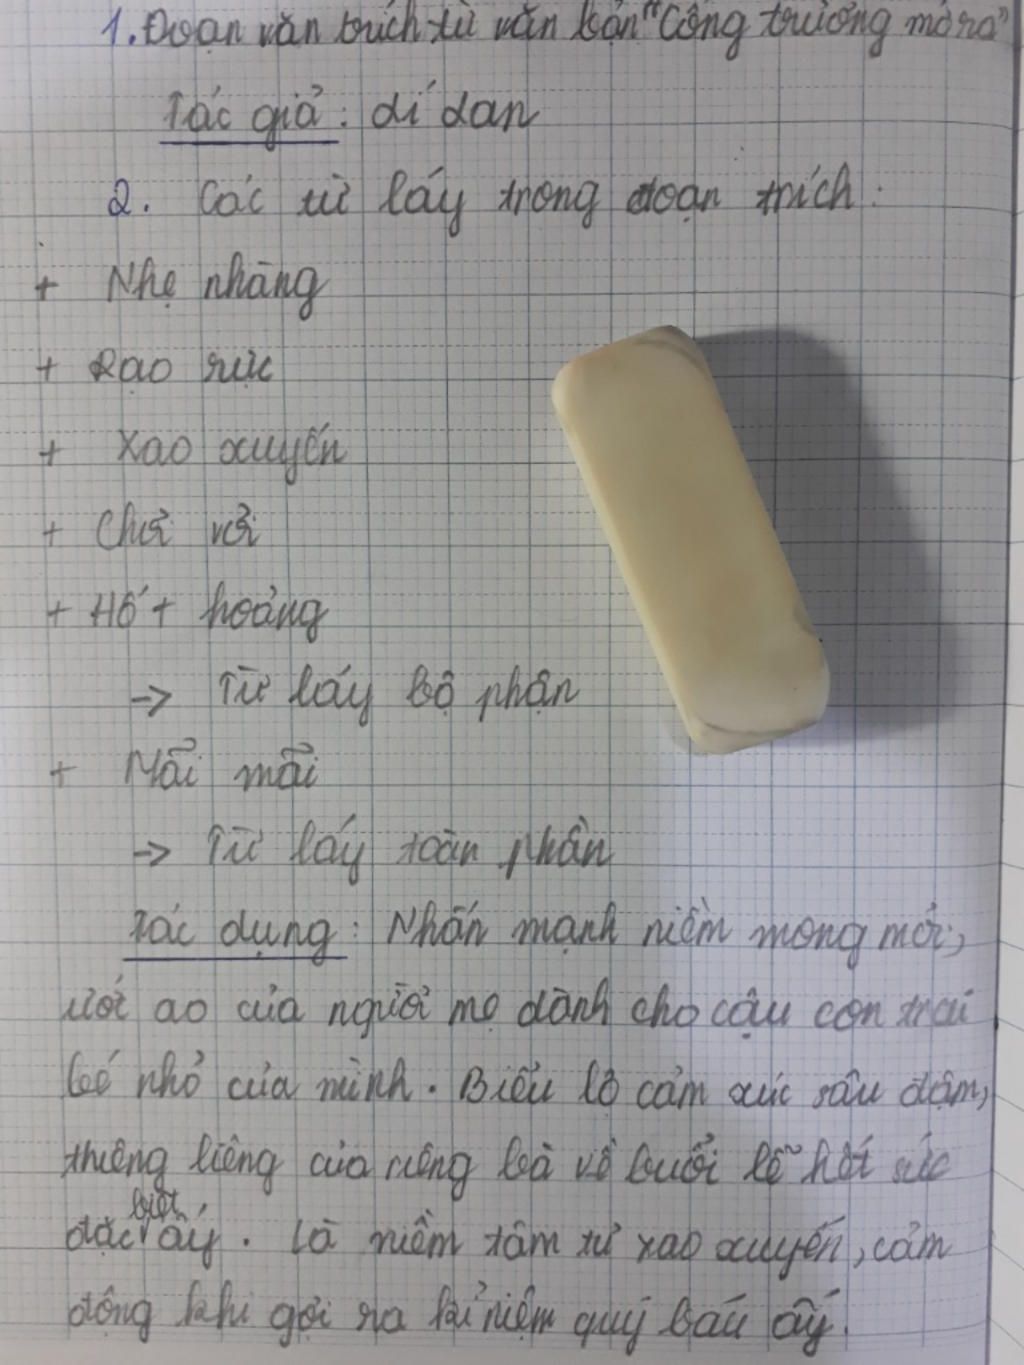 1. Đoạn văn trích từ văn bản "Cổng trường mở ra"
Tác giả: Lí Lan
2. Các từ láy trong đoạn trích:
+ Nhẹ nhàng
+ Rạo rực
+ Xao xuyến
+ Chơi vơi
+ Hốt hoảng
-> Từ láy bộ phận
+ Mãi mãi
-> Từ láy toàn phần
Tác dụng: Nhấn mạnh niềm mong mỏi,
ước ao của người mẹ dành cho cậu con trai
bé nhỏ của mình. Biểu lộ cảm xúc sâu đậm,
thiêng liêng của riêng bà về buổi lễ hết sức
đặc biệt ấy. Là niềm tâm tư xao xuyến, cảm
động khi gợi ra kỉ niệm quý báu ấy.